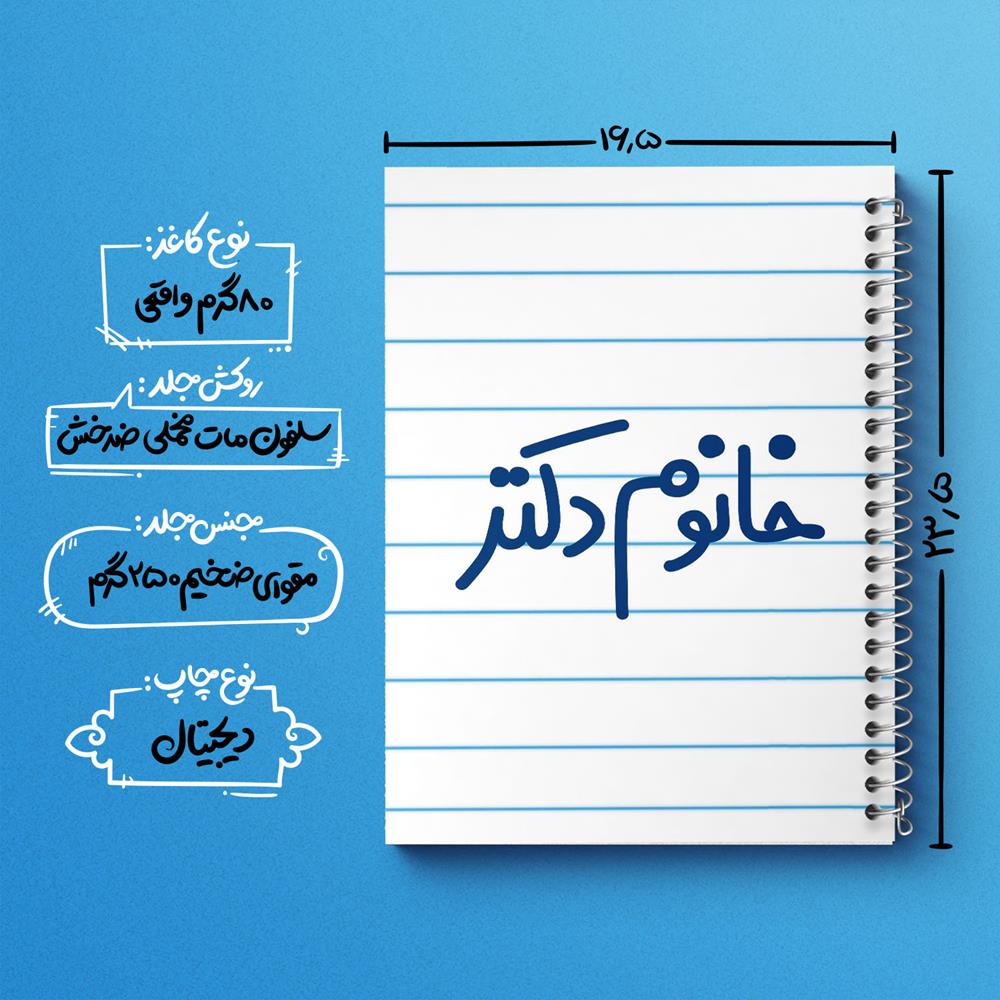 ۱۶٫۵
۲۳٫۵
خانوم دکتر
نوع کاغذ:
۸۰ گرم واقعی
روکش جلد:
سلفون مات مخملی ضدخش
جنس جلد:
مقوای ضخیم ۲۵۰ گرم
نوع چاپ:
دیجیتال